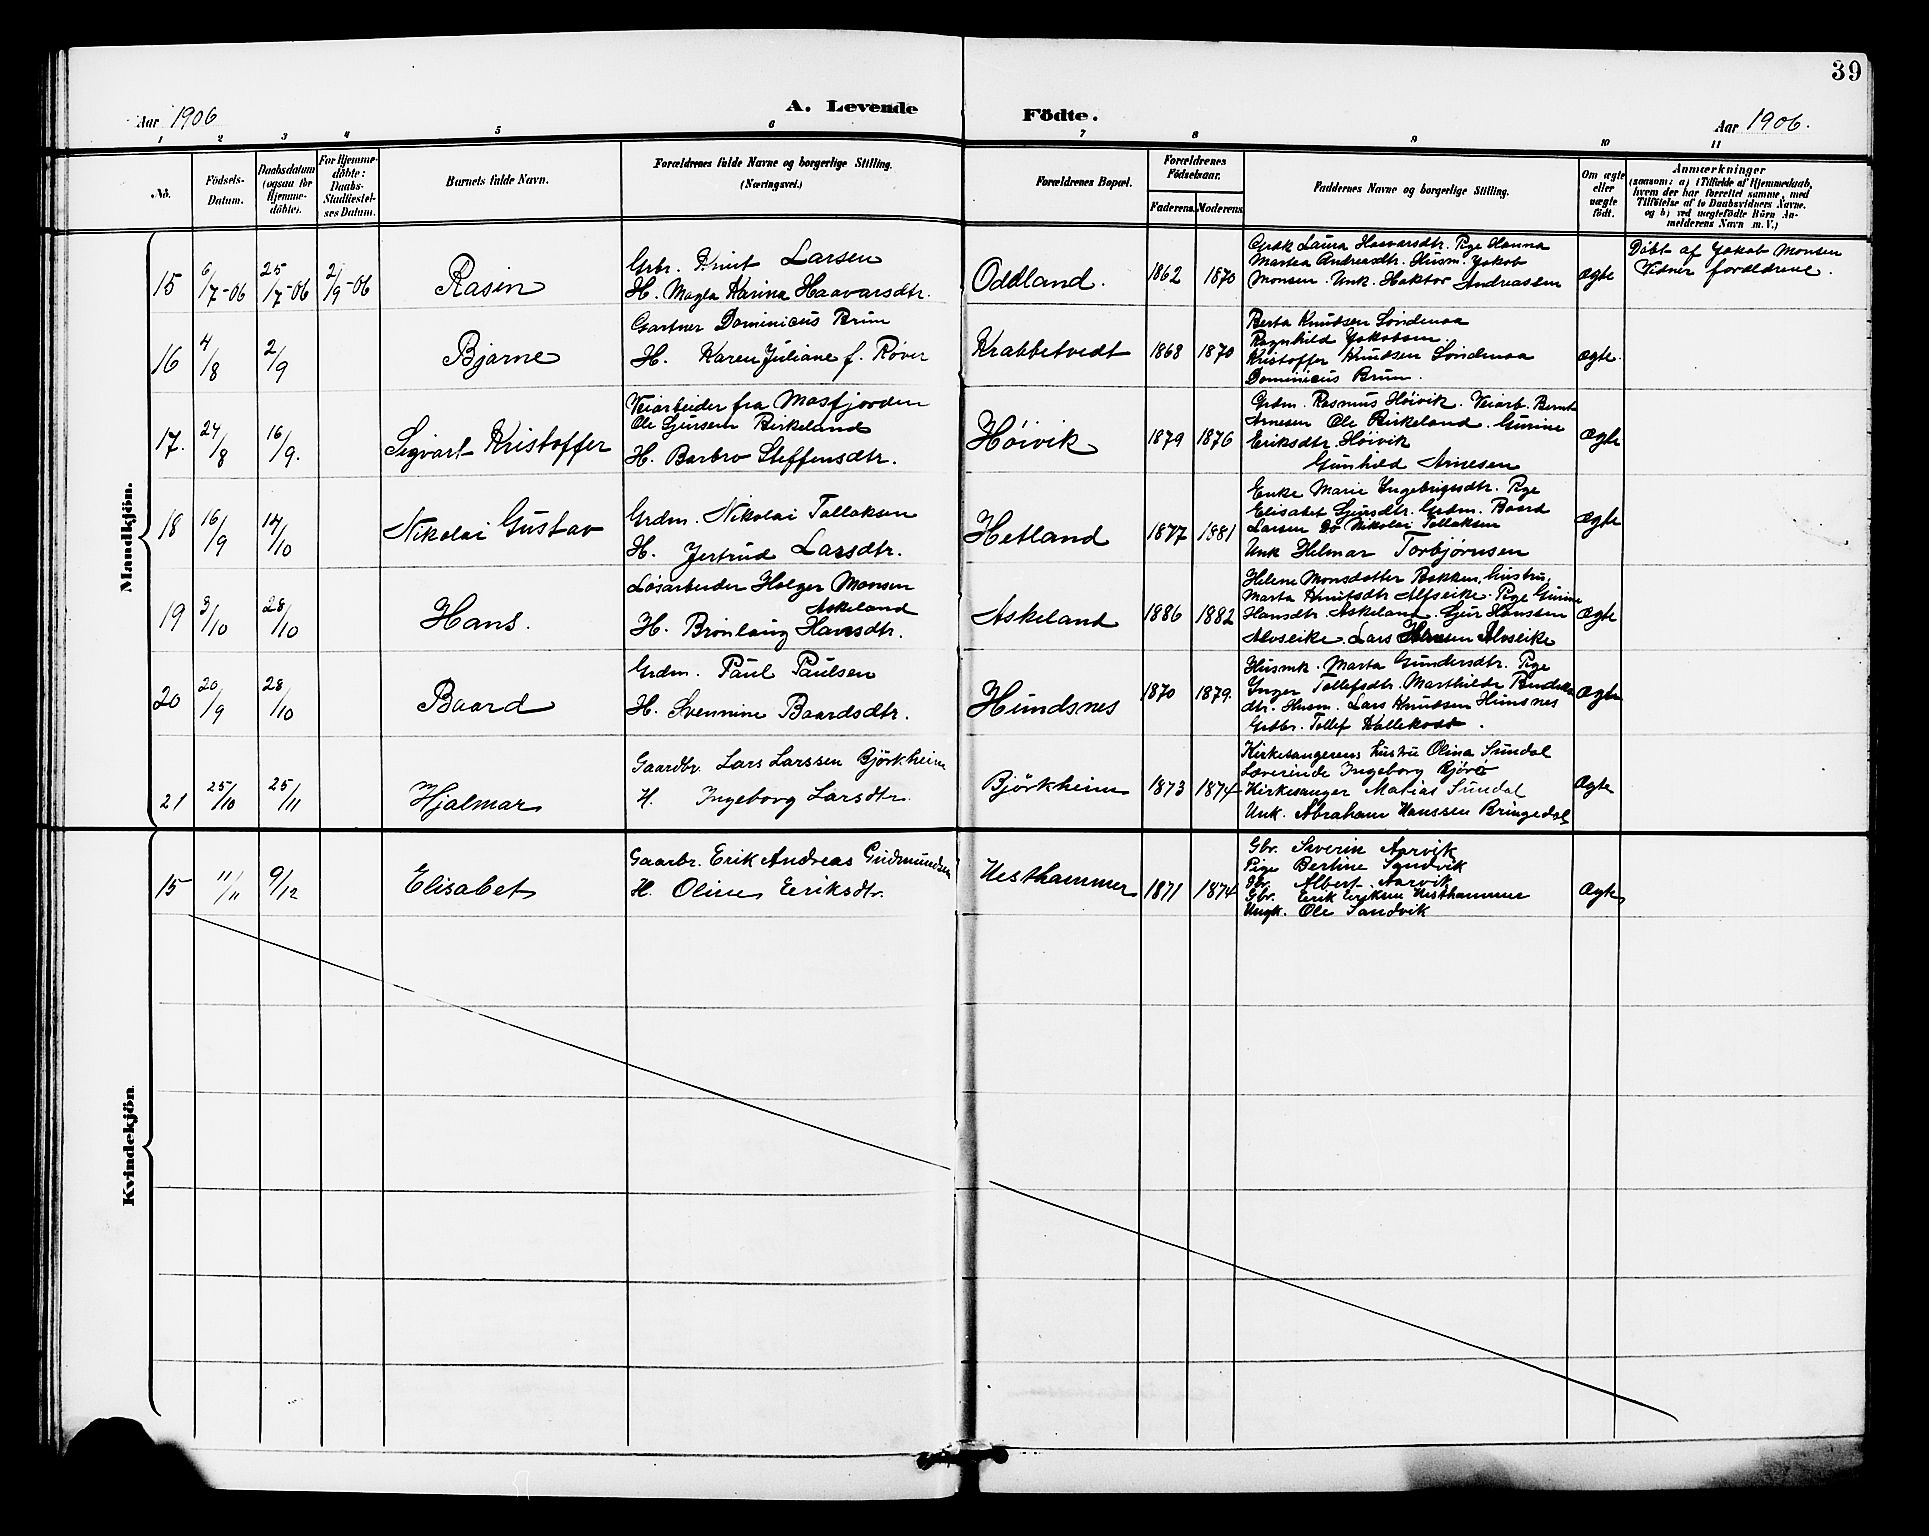 39
Aar 1906
A. Levende
Födte.
Aar 1906.
1 2 3 4 5 6 7 8 9 10 11
No.
Födsels-
Datum.
Daabsdatum
(ogsaa for
Hjemme-
döbte).
For Hjemme-
döbte:
Daabs-
Stadfæstel-
ses Datum.
Barnets fulde Navn.
Forældrenes fulde Navne og borgerlige Stilling.
(Næringsvei.)
Forældrenes Bopæl.
Forældrenes
Födselsaar.
Faderens. Moderens.
Faddernes Navne og borgerlige Stilling.
Om ægte
eller
uægte
födt.
Anmærkninger
(saasom: a) i Tilfælde af Hjemmedaab,
hvem der har forrettet samme, med
Tilföielse af to Daabsvidners Navne.
og b) ved uægtefödte Börn An-
melderens Navn m. V.)
Mandkjön.
15
6/7-06
25/7-06
2/9-06
Rasin
Grbr. Knut Larsen
H. Magla Karina Haavarsdtr.
Oddland.
1862
1870
Grdk Laura Haavarsdtr. Pige Hanna
Martea Andreasdtr. Husm. Jakob
Monsen. Unk. Haktor Andreassen
Ægte
Döbt af Jakob Monsen
Vidner foreldrene.
16
4/8
2/9
Bjarne
Gartner Dominicus Brun
H. Karen Juliane f. Røver
Krabbetvedt
1868
1870
Berta Knutsen Söndenaa
Ragnhild Jakobsen.
Kristoffer Knudsen Söndenaa
Dominicus Brun.
Ægte
17.
24/8
16/9.
Sigvart Kristoffer
Veiarbeider fra Masfjorden
Ole Gjursen Birkeland
H. Barbro Steffensdtr.
Höivik
1879
1876
Grdm. Rasmus Höivik. Veiarb. Bernt
Arnesen Ole Birkeland. Gurine
Eriksdtr. Höivik
Gunhild Arnesen
Ægte
18
16/9
14/10
Nikolai Gustav
Grdm. Nikolai Tollaksen
H. Jertrud Larsdtr.
Hetland
1877
1881
Enke Marie Ingebrigtsdtr. Pige
Elisabet Gjursdtr. Grdm. Baard
Larsen Do Nikolai Tollaksen
Unk Helmar Torbjørnsen
Ægte
19
3/10
28/10
Hans.
Løsarbeider Holger Monsen
Askeland
H. Brönlaug Hansdtr.
Askeland
1886
1882
Helene Monsdatter Bakken, Gustru,
Marta Knutsdtr Alfseike. Pige Gurine
Hansdtr. Askeland. Gjur Hanssen
Alvseike. Lars Hansen Alvseike
Ægte
20
20/9
28/10
Baard
Grdm. Paul Paulsen
H. Svennine Baardsdtr.
Hundsnes
1870
1879.
Husmk. Marta Gundersdtr. Pige
Inger Tollefsdtr. Marthilde
dtr. Husm. Lars Knutsen Hunsnes
Grdbr. Tollef Kallekodt.
Ægte
21
25/10
25/11
Hjalmar
Gaardbr. Lars Larssen Björkheim
H. Ingeborg Larsdtr.
Björkheim
1873
1874
Kirkesangerens hustru Olina Sundal
Lærerinde Ingeborg Bjórö
Kirkesanger Matias Sundal
Unk. Abraham Hanssen Bringedal
Ægte
Kvindekjön
15
11/11
9/12
Elisabet
Gaarbr. Erik Andreas Gudmundsen
H. Oline Eeriksdtr.
Vesthammer
1871
1874
Gbr. Severin Aarvik
Pige Bertine Sandvik
Albert Aarvik
Gbr. Erik Eriksen Vesthammer
Ungk. Ole Sandvik
Ægte